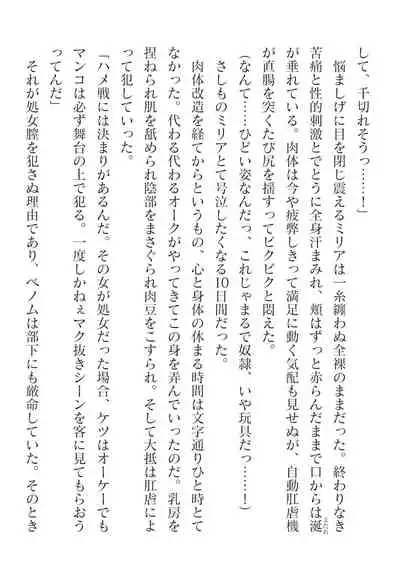 して、千切れそうっ……！」
　悩ましげに目を閉じ震えるミリアは一糸纏わぬ全裸のままだった。終わりなき
苦痛と性的刺激とでとうに全身汗まみれ、頬はずっと赤らんだままで口からは涎
が垂れている。肉体は今や疲弊しきって満足に動く気配も見せぬが、自動肛虐機
が直腸を突くたび尻を揺すってビクビクと悶えた。
（なんて……ひどい姿なんだっ、これじゃまるで奴隷、いや玩具だっ……！）
　さしものミリアとて号泣したくなる10日間だった。
　肉体改造を経てからというもの、心と身体の休まる時間は文字通りひと時とて
なかった。代わる代わるオークがやってきてこの身を弄んでいったのだ。乳房を
捏ねられ肌を舐められ陰部をまさぐられ肉豆をこすられ。そして大抵は肛虐によ
って犯していった。
「ハメ戦には決まりがあるんだ。その女が処女だった場合、ケツはオーケーでも
マンコは必ず舞台の上で犯る。一度しかねぇマク抜きシーンを客に見てもらおう
ってんだ」
　それが処女膣を犯さぬ理由であり、ベノムは部下にも厳命していた。そのとき